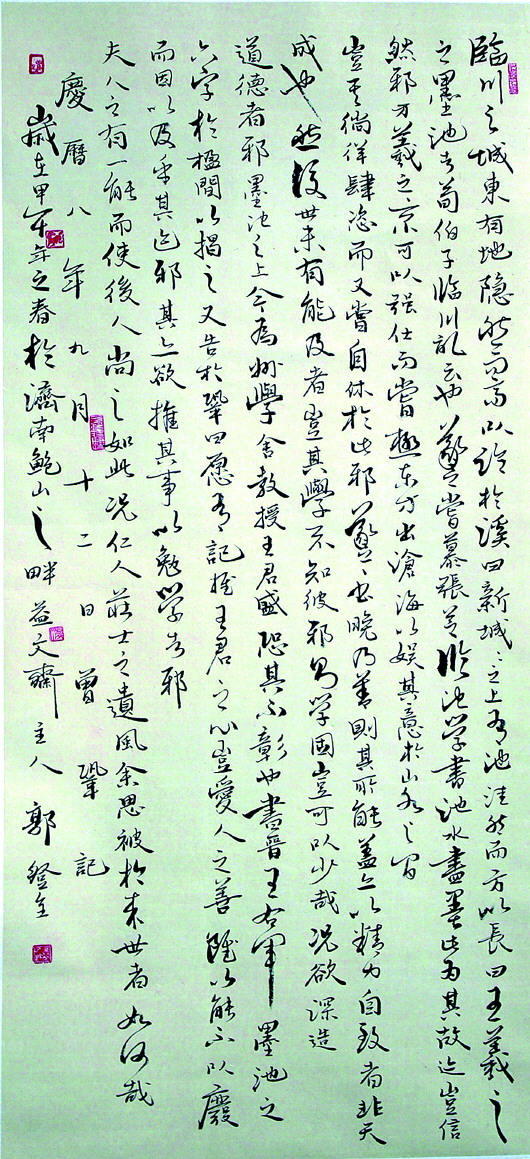 臨川之城東有地隱然而高以臨於溪曰新城〻之上有池洼然而方以長曰王羲之
之墨池者荀伯子臨川記云也羲之嘗慕張芝臨池學書池水盡墨此為其故迹豈信
然邪方羲之不可以强仕而嘗極東方出滄海以娛其意於山水之間
豈其徜徉肆恣而又嘗自休於此邪羲之之書晚乃善則其所能蓋亦以精力自致者非天
成也然後世未有能及者豈其學不如彼邪則學固豈可以少哉況欲深造
道德者邪墨池之上今為州學舍教授王君盛恐其不彰也書晉王右軍墨池之
六字於楹間以揭之又告於鞏曰愿有記推王君之心豈愛人之善雖以能不以廢
而因以及乎其迹邪其亦欲推其事以勉學者邪
夫人之有一能而使後人尚之如此況仁人莊士之遺風余思被於來世者如何哉
慶曆八年九月十二日曾鞏記
歲在甲午年之春於濟南鮑山之畔益文齋主人郭